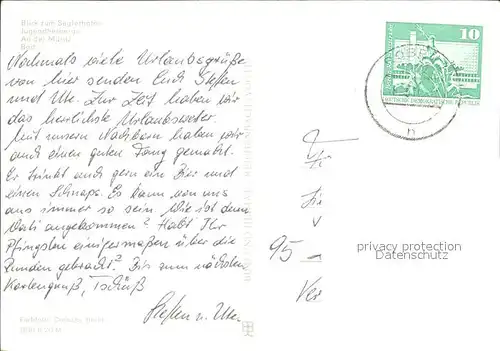 Blick zum
An der
Nochmals viele Urlaubsgrüße
von hier senden Euch Steffen
und Ute. Zur Zeit haben wir
das herrlichste Urlaubswetter.
Mit unsern Nachbarn haben wir
auch einen guten Fang gemacht.
Er trinkt auch gern ein Bier und
einen Schnaps. Es kann von uns
aus immer so sein. Wie ist denn
Vati angekommen? Habt Ihr
Pfingsten einigermaßen über die
Runden gebracht? Bis zum nächsten
Kartengruß, Tschüß
Steffen u. Ute.
10
DEUTSCHE DEMOKRATISCHE REPUBLIK
95
privacy protection
Datenschutz